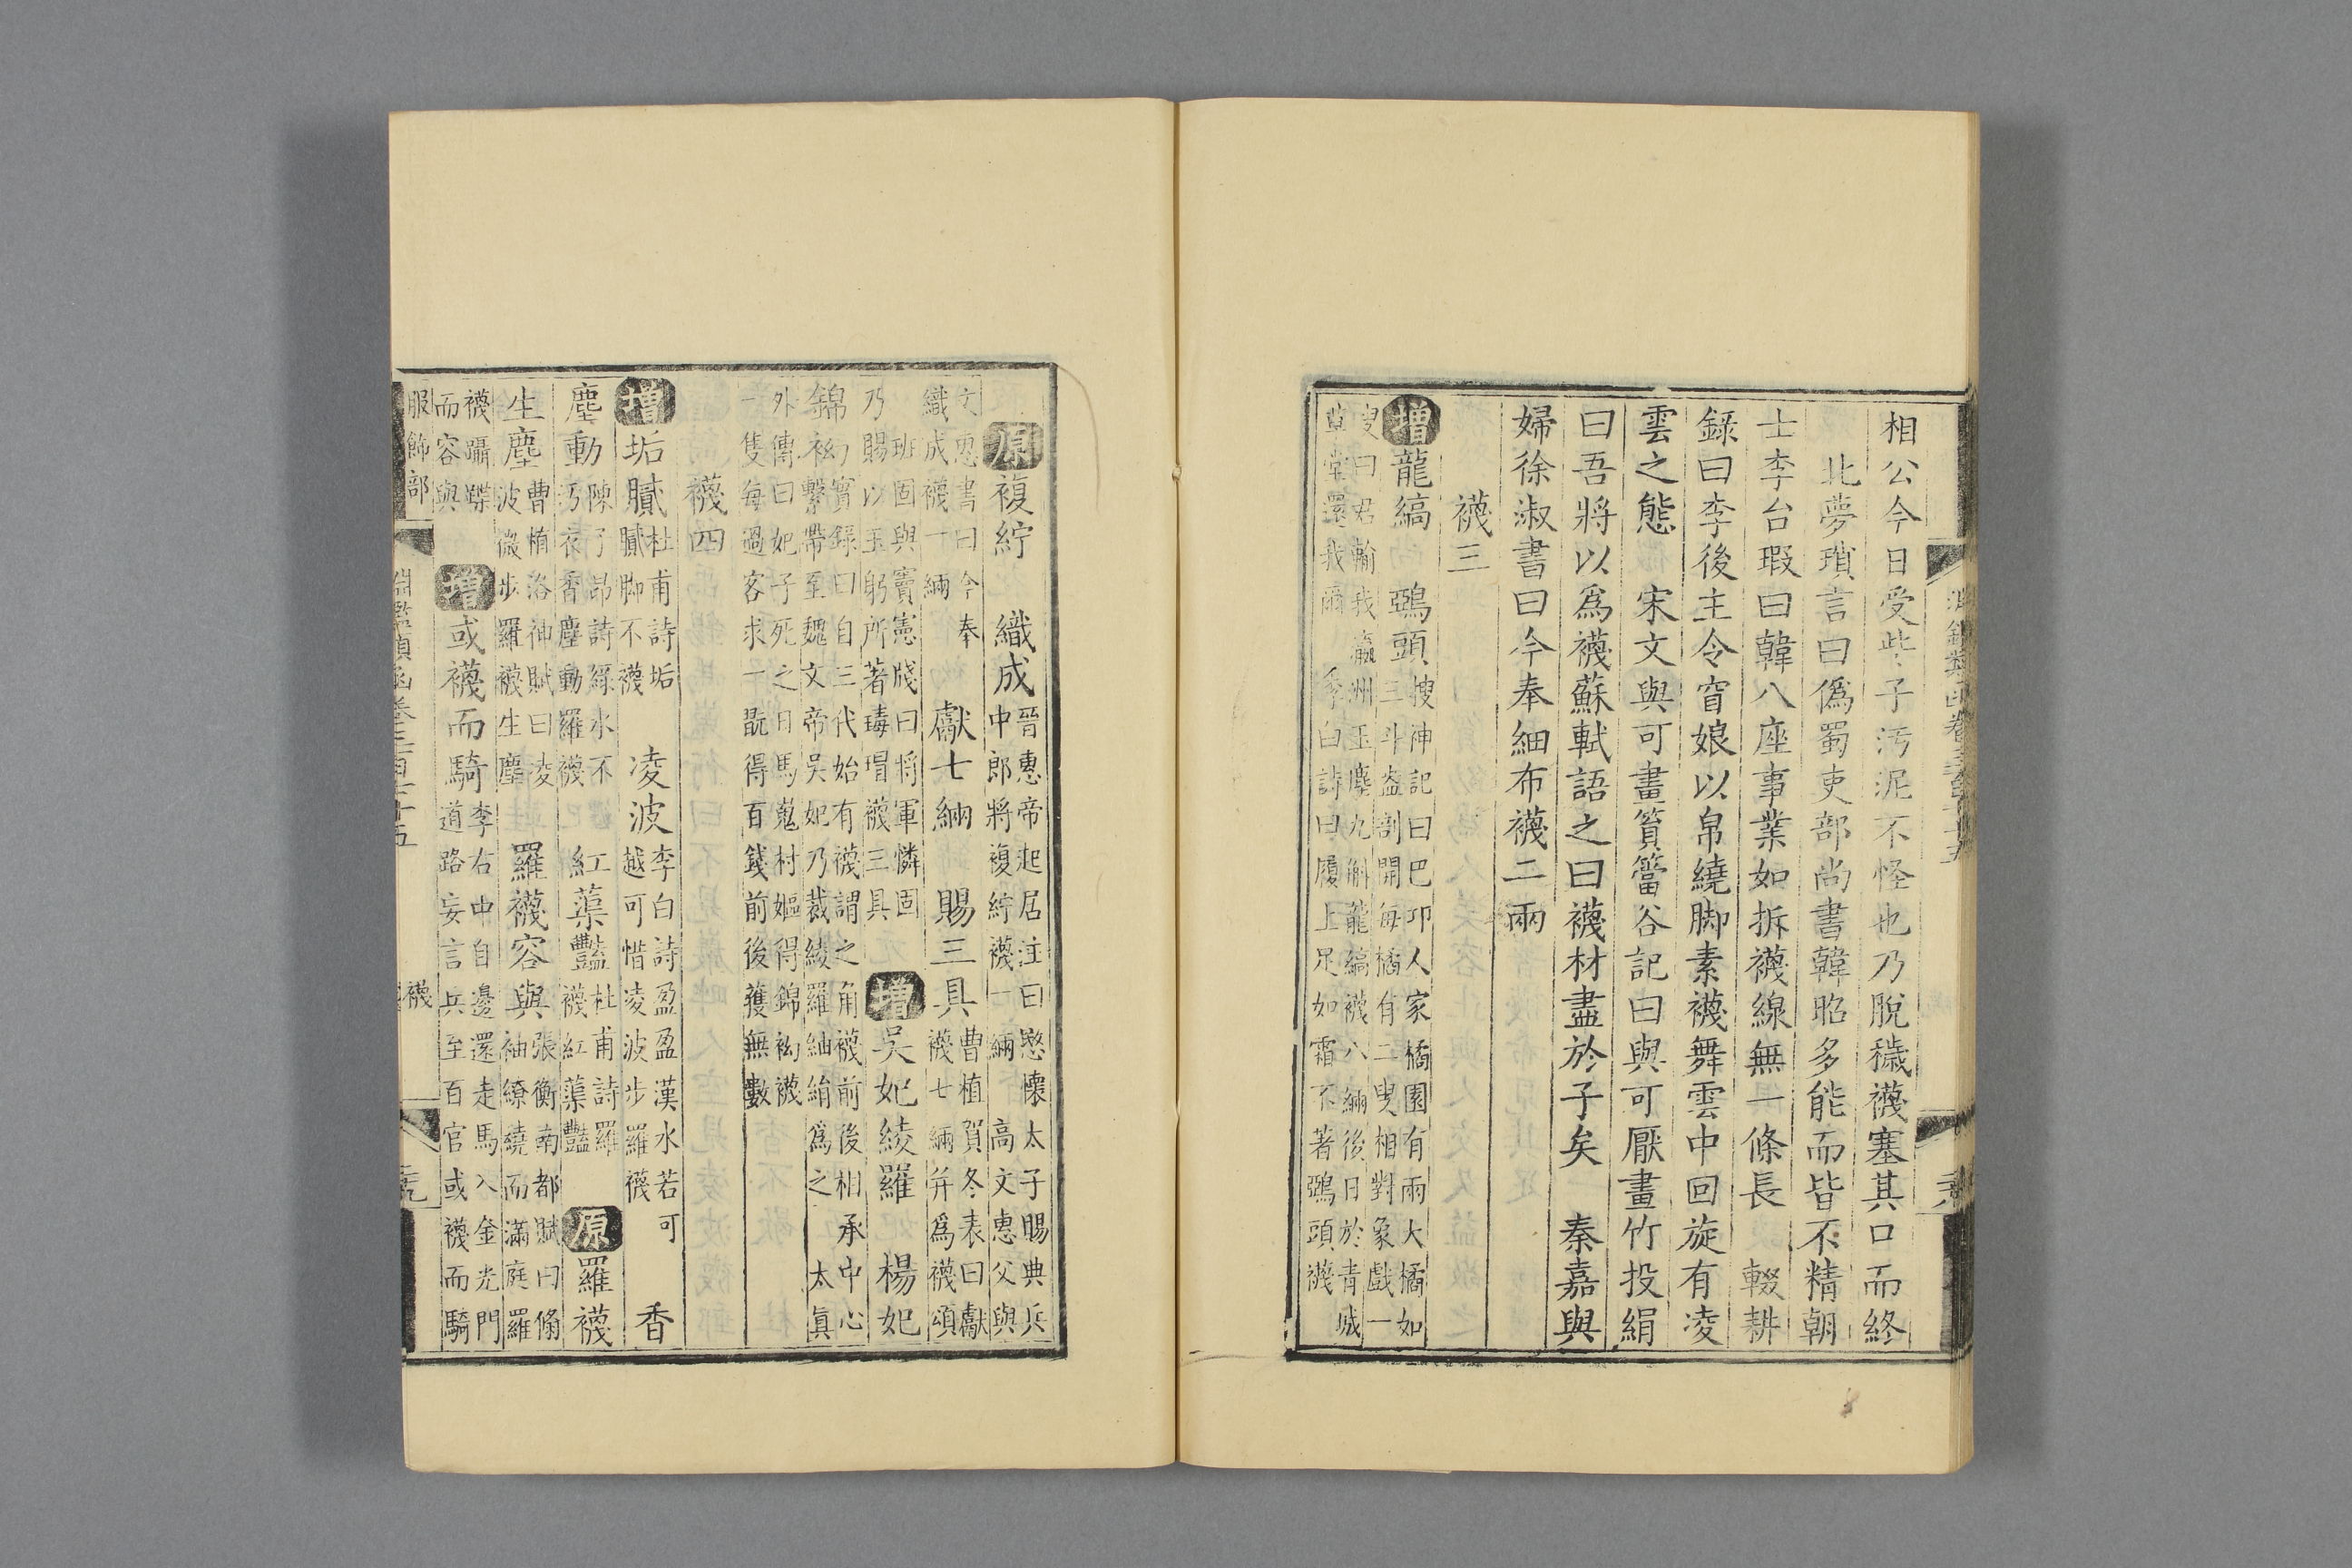 相公今日受些子汚泥不怪也乃脫穢襪塞其口而終
北夢瑣言曰僞蜀吏部尚書韓昭多能而皆不精朝
士李台瑕曰韓八座事業如拆襪線無一條長 輟耕
錄曰李後主令窅娘以帛繞脚素襪舞雲中回旋有凌
雲之態 宋文與可畫篔簹谷記曰與可厭畫竹投絹
曰吾將以爲襪蘇軾語之曰襪材盡於子矣 秦嘉與
婦徐淑書曰今奉細布襪二兩
襪三
增龍縞 鵶頭搜神記曰巴邛人家橘園有兩大橘如
三斗盎剖開每橘有二叟相對象戲一
叟曰君輸我瀛洲玉塵九斛龍縞襪八緉後日於青城
草堂還我爾 李白詩曰履上足如霜不著鵶頭襪
原複紵 織成晉惠帝起居注曰愍懷太子賜典兵
中郎將複紵襪一緉 高文惠父與
文惠書曰今奉
織成襪一緉
獻七緉 賜三具曹植賀冬表曰獻
襪七緉并爲襪頌
班固與竇憲牋曰將軍憐固
乃賜以玉躬所著瑇瑁襪三具
增吳妃綾羅 楊妃
錦袎實錄曰自三代始有襪謂之角襪前後相承中心
繫帶至魏文帝吳妃乃裁綾羅紬絹爲之 太眞
外傳曰妃子死之日馬嵬村嫗得錦袎襪
一隻每過客求一翫得百錢前後獲無數
襪四
增垢膩杜甫詩垢
膩脚不襪
凌波李白詩盈盈漢水若可
越可惜凌波步羅襪
香
塵動陳子昂詩綠水不
沔衣香塵動羅襪
紅蕖豔杜甫詩羅
襪紅蕖豔
原羅襪
生塵曹植洛神賦曰凌
波微步羅襪生塵
羅襪容與張衡南都賦曰翛
袖繚繞而滿庭羅
襪躡蹀
而容與
增或襪而騎李右中自邊還走馬入金光門
道路妄言兵至百官或襪而騎
服飾部
淵鑑類函卷三百七十五
襪